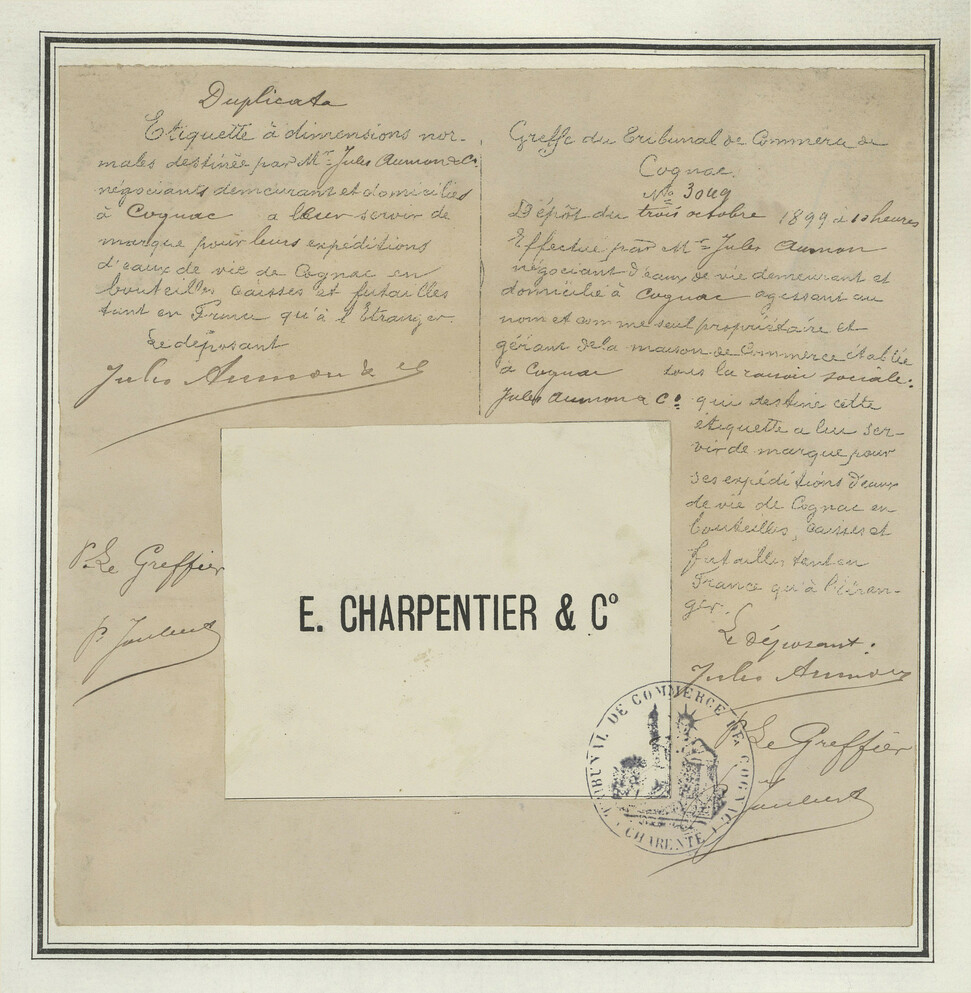 Duplicata
Etiquette à dimensions nor-
males destinée par Mr Jules Aumon & Co
négociants demeurant et domiciliés
à Cognac a leur servir de
marque pour leurs expéditions
d'eaux de vie de Cognac en
bouteilles caisses et futailles
tant en France qu'à l'Etranger.
Le déposant
Jules Aumon & Co
Greffe du Tribunal de Commerce de
Cognac.
No 3049
Dépôt du trois octobre 1899 à 10 heures
Effectué par Mr Jules Aumon
négociant d'eaux de vie demeurant et
domicilié à Cognac agissant au
nom et comme seul propriétaire et
gérant de la maison de Commerce établie
à Cognac sous la raison sociale:
Jules Aumon & Co qui destine cette
étiquette a lui ser-
vir de marque pour
ses expéditions d'eaux
de vie de Cognac en
bouteilles, caisses et
futailles tant en
France qu'à l'étran-
ger.
Le déposant.
Jules Aumon
P. Le Greffier
P. Le Greffier
E. CHARPENTIER & Co
TRIBUNAL DE COMMERCE DE COGNAC
CHARENTE